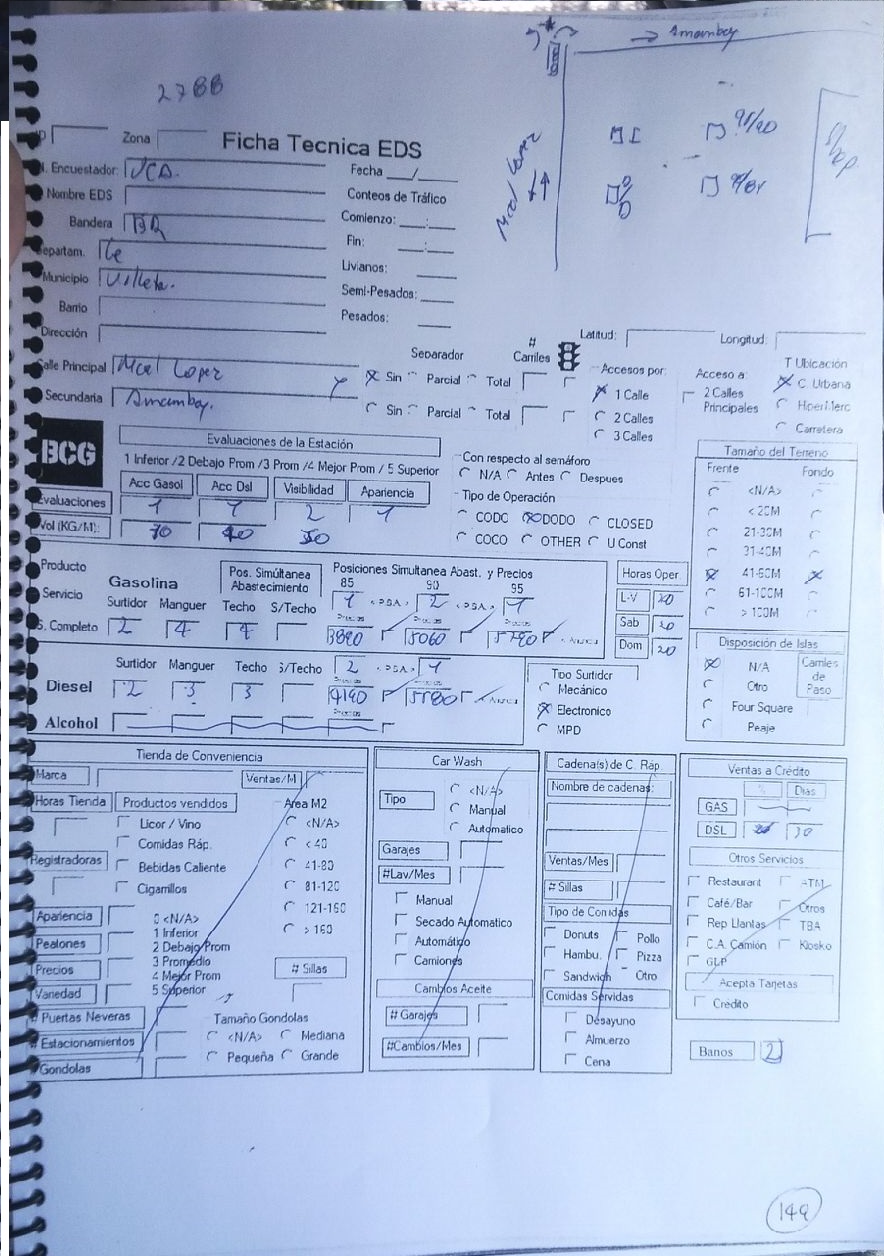 → Amambay
27BB
Mcal Lopez
Shop
ID Zona Ficha Tecnica EDS
N. Encuestador: Fecha __/__
Nombre EDS Conteos de Tráfico
Bandera BR Comienzo: __:__
Departam. Fin: __:__
Municipio Villeta. Livianos:
Barrio Semi-Pesados:
Dirección Pesados:
Latitud: Longitud:
Separador # Carriles Accesos por: Acceso a: T Ubicación
Calle Principal Mcal Lopez Y Sin Parcial Total 1 Calle 2 Calles Principales C. Urbana
Secundaria Amambay. Sin Parcial Total 2 Calles HiperMerc
3 Calles Carretera
BCG
Evaluaciones de la Estación
1 Inferior /2 Debajo Prom /3 Prom /4 Mejor Prom / 5 Superior
Acc Gasol Acc Dsl Visibilidad Apariencia
Evaluaciones 1 1 2 1
Vol (KG/M): 70 40 50
Con respecto al semáforo
N/A Antes Despues
Tipo de Operación
CODO DODO CLOSED
COCO OTHER U Const
Tamaño del Terreno
Frente Fondo
<N/A>
< 20M
21-30M
31-40M
41-60M
61-100M
> 100M
Producto Gasolina Pos. Símúltanea Abastecimiento Posiciones Simultanea Abast. y Precios
85 90 95
Servicio Surtidor Manguer Techo S/Techo 1 2 1
S. Completo 2 4 4 5060 5790
Horas Oper.
L-V 20
Sab 20
Dom 20
Diesel Surtidor Manguer Techo S/Techo 2 1
2 3 3 4190 5580
Alcohol
Tipo Surtidor
Mecánico
Electronico
MPD
Disposición de Islas
N/A Carriles de Paso
Otro
Four Square
Peaje
Tienda de Conveniencia
Marca Ventas/M
Horas Tienda Productos venddos Area M2
Licor / Vino <N/A>
Comidas Ráp. < 40
Registradoras Bebidas Caliente 41-80
Cigarrillos 81-120
Apariencia 0 <N/A> 121-160
Peatones 1 Inferior > 160
2 Debajo Prom
Precios 3 Promedio
4 Mejor Prom # Sillas
Variedad 5 Superior
# Puertas Neveras Tamaño Gondolas
# Estacionamientos <N/A> Mediana
Gondolas Pequeña Grande
Car Wash
Tipo <N/A>
Manual
Automatico
Garajes
#Lav/Mes
Manual
Secado Automatico
Automático
Camiones
Cambios Aceite
# Garajes
#Cambios/Mes
Cadena(s) de C. Rap.
Nombre de cadenas:
Ventas/Mes
# Sillas
Tipo de Comidas
Donuts Pollo
Hambu. Pizza
Sandwich Otro
Comidas Servidas
Desayuno
Almuerzo
Cena
Ventas a Crédito
% Dias
GAS
DSL 30
Otros Servicios
Restaurant ATM
Café/Bar Otros
Rep Llantas TBA
C.A. Camión Kiosko
GLP
Acepta Tarjetas
Crédito
Banos 2
149